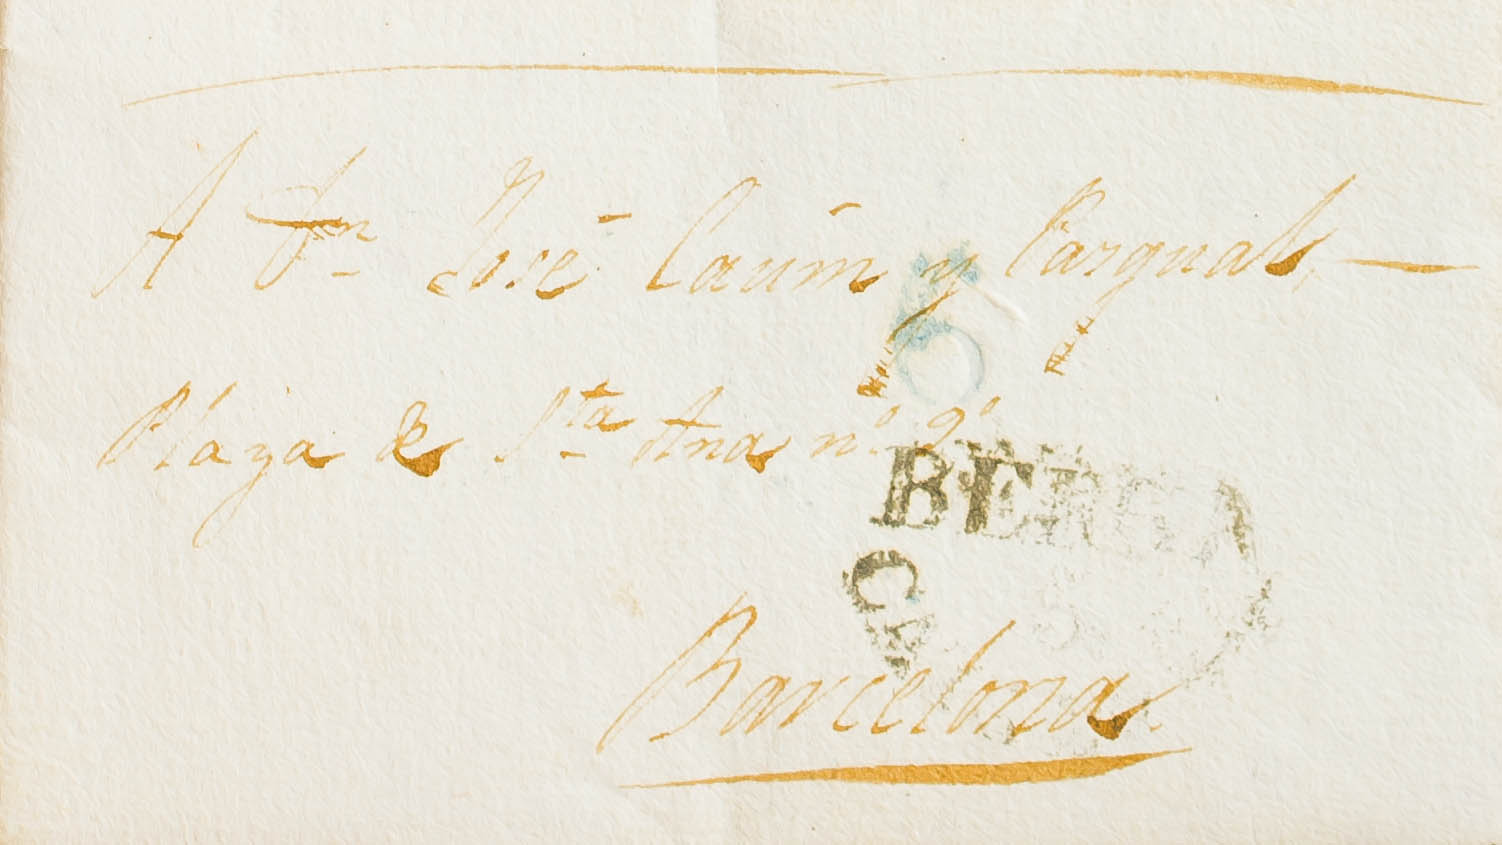 A Dn José Caum y Pasqual,
5
Plaza de Sta Ana no. 9o
BERGA
CA
Barcelona.